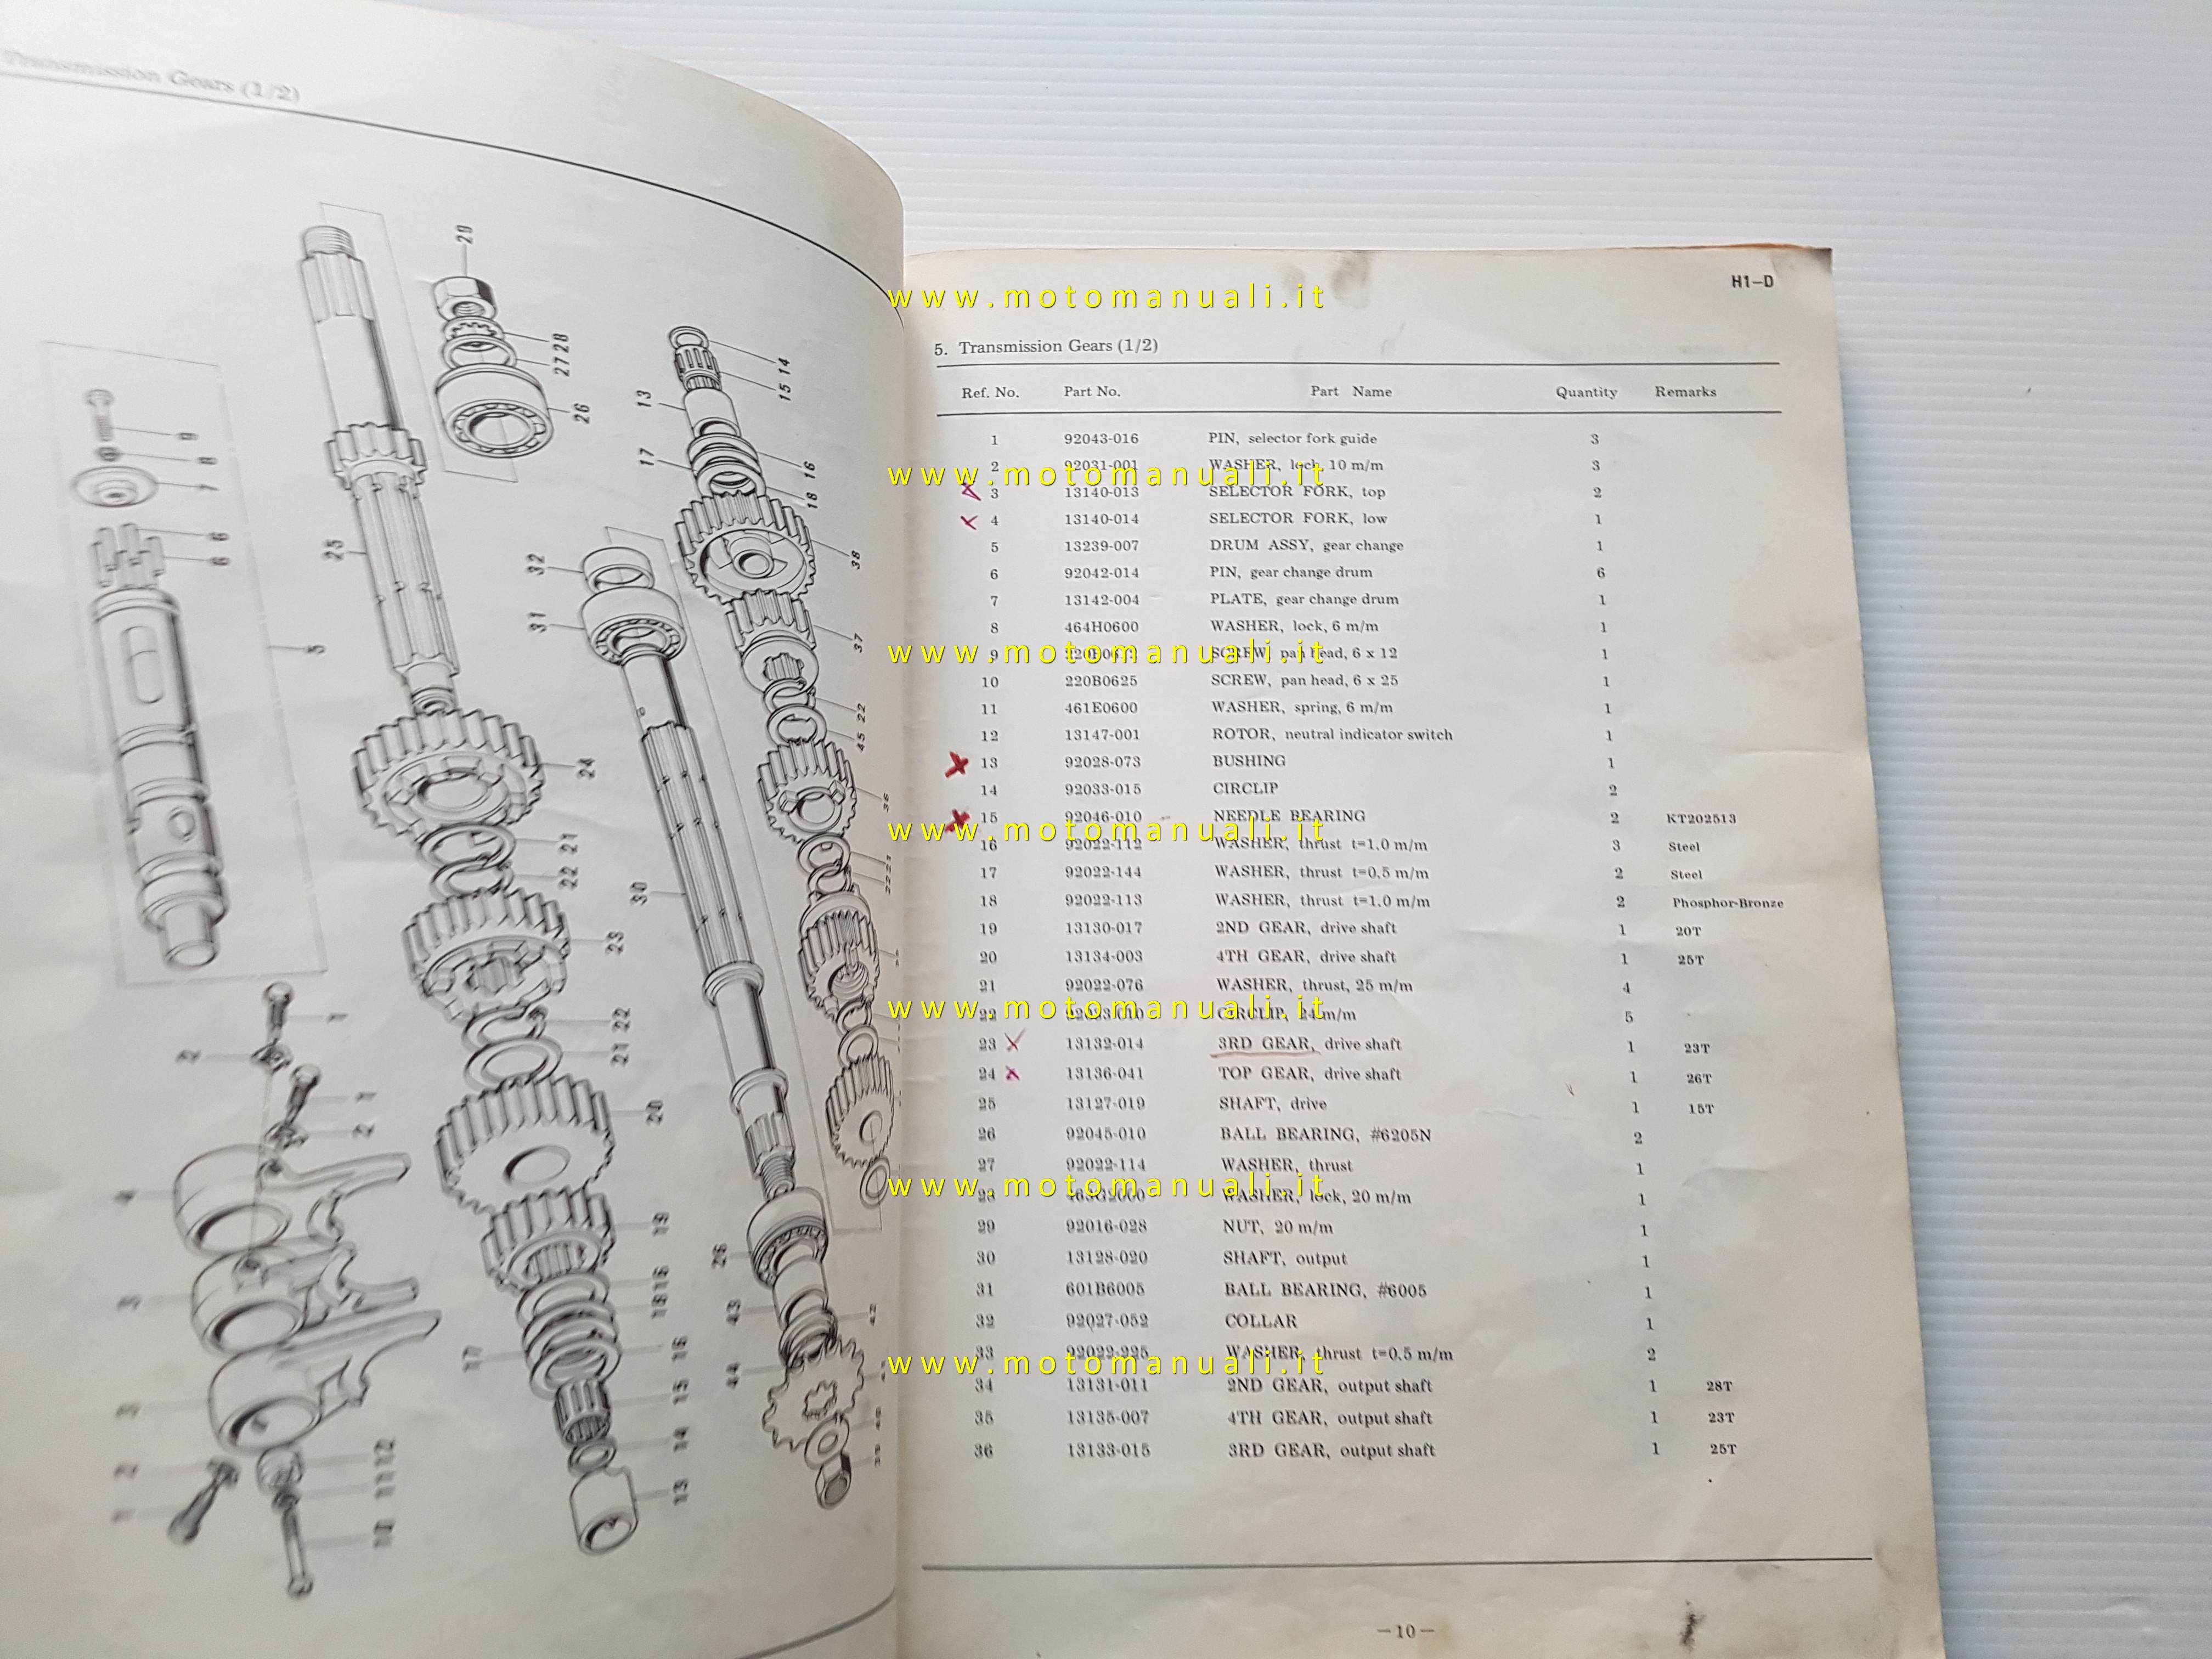 Transmission Gears (1/2)
H1-D
5. Transmission Gears (1/2)
Ref. No. Part No. Part Name Quantity Remarks
1 92043-016 PIN, selector fork guide 3
2 92031-001 WASHER, lock, 10 m/m 3
3 13140-013 SELECTOR FORK, top 2
4 13140-014 SELECTOR FORK, low 1
5 13239-007 DRUM ASSY, gear change 1
6 92042-014 PIN, gear change drum 6
7 13142-004 PLATE, gear change drum 1
8 464H0600 WASHER, lock, 6 m/m 1
9 SCREW, pan head, 6 x 12 1
10 220B0625 SCREW, pan head, 6 x 25 1
11 461E0600 WASHER, spring, 6 m/m 1
12 13147-001 ROTOR, neutral indicator switch 1
13 92028-073 BUSHING 1
14 92033-015 CIRCLIP 2
15 92046-010 NEEDLE BEARING 2 KT202513
16 92022-112 WASHER, thrust t=1.0 m/m 3 Steel
17 92022-144 WASHER, thrust t=0.5 m/m 2 Steel
18 92022-113 WASHER, thrust t=1.0 m/m 2 Phosphor-Bronze
19 13130-017 2ND GEAR, drive shaft 1 20T
20 13134-003 4TH GEAR, drive shaft 1 25T
21 92022-076 WASHER, thrust, 25 m/m 4
22 CIRCLIP, 24 m/m 5
23 13132-014 3RD GEAR, drive shaft 1 23T
24 13136-041 TOP GEAR, drive shaft 1 26T
25 13127-019 SHAFT, drive 1 15T
26 92045-010 BALL BEARING, #6205N 2
27 92022-114 WASHER, thrust 1
28 WASHER, lock, 20 m/m 1
29 92016-028 NUT, 20 m/m 1
30 13128-020 SHAFT, output 1
31 601B6005 BALL BEARING, #6005 1
32 92027-052 COLLAR 1
33 92022-225 WASHER, thrust t=0.5 m/m 2
34 13131-011 2ND GEAR, output shaft 1 28T
35 13135-007 4TH GEAR, output shaft 1 23T
36 13133-015 3RD GEAR, output shaft 1 25T
-10-
www.motomanuali.it
www.motomanuali.it
www.motomanuali.it
www.motomanuali.it
www.motomanuali.it
www.motomanuali.it
www.motomanuali.it